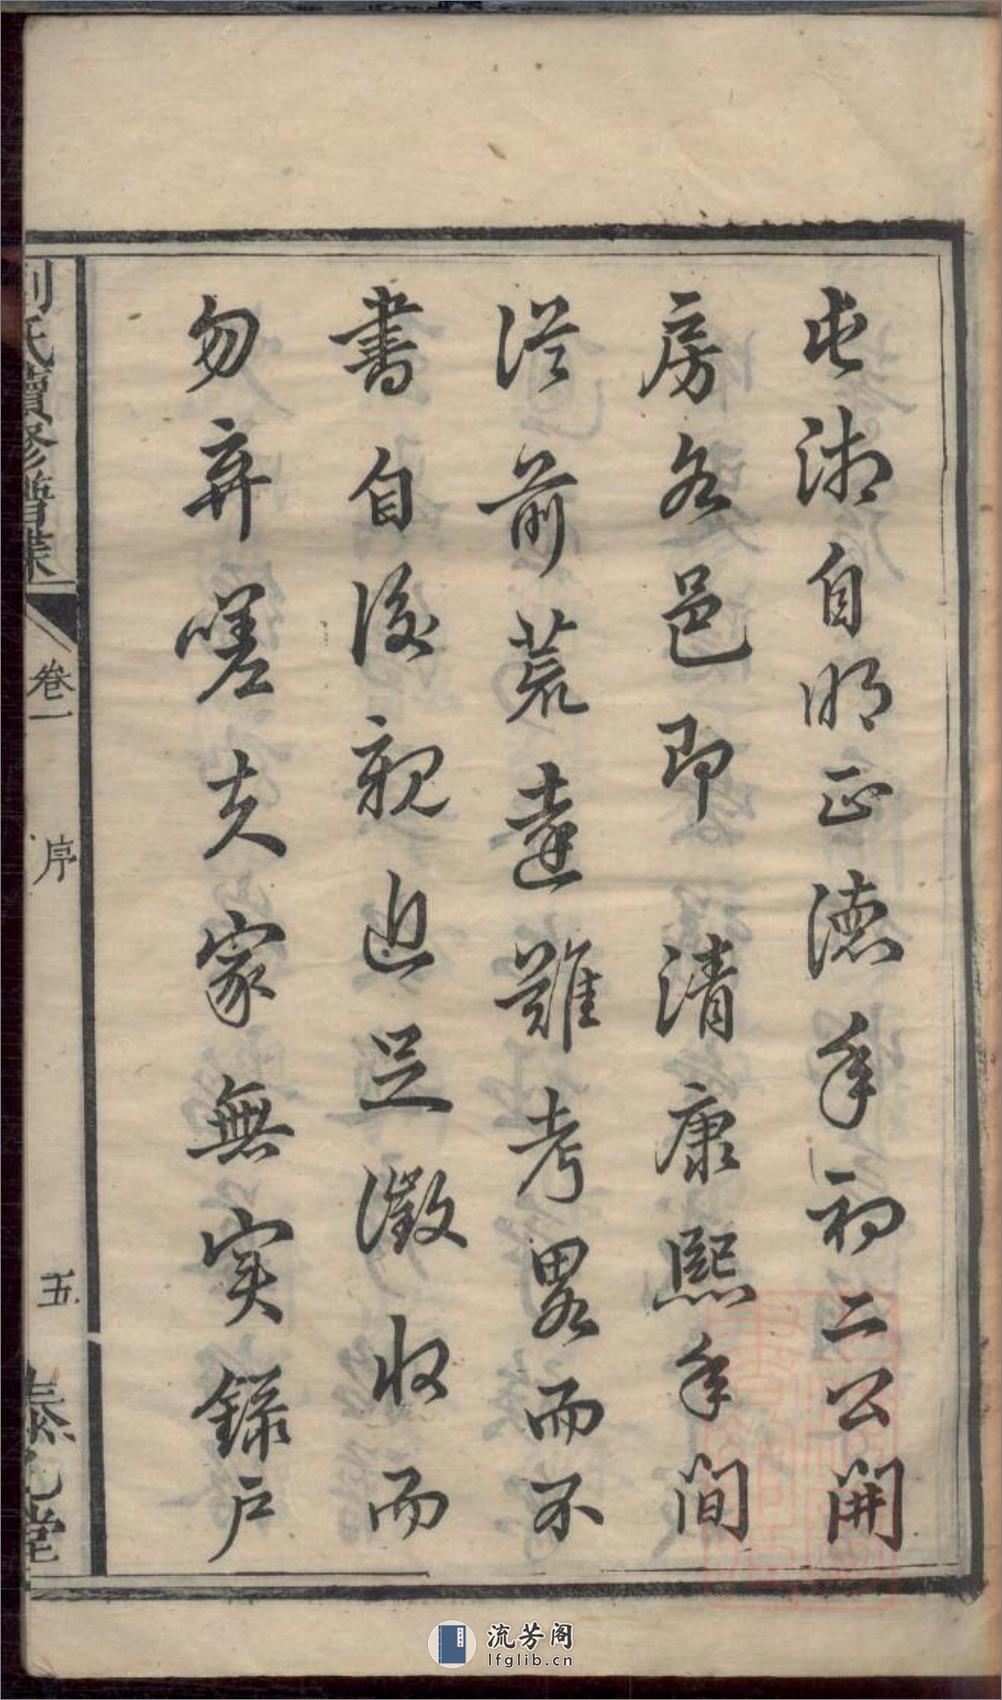 屯湘自明正德年初二公開
房各邑即清康熙年間
從前荒遠難考畧而不
書自後親近足徵收而
勿弃嗟夫家無実錄戶
氏續修譜牒
卷一
序
五
堂
流芳阁
lfglib.cn